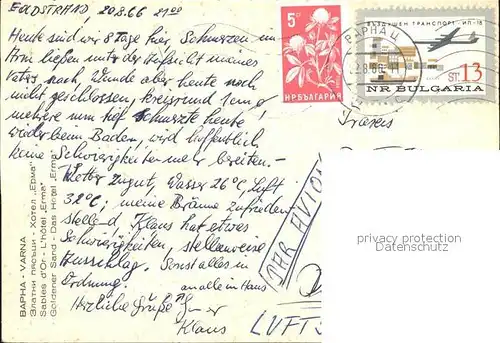 GOLDSTRAND, 20.8.66 21.00
Heute sind wir 8 Tage hier. Schmerzen im
Arm ließen unter der Aufsicht meines
Vaters nach, Wunde aber heute noch
nicht geschlossen, kreisrund 1cm ⌀
mehrere mm tief schmerzte heute
wieder beim Baden, wird hoffentlich
keine Schwierigkeiten mehr bereiten. –
Wetter zu gut, Wasser 26°C, Luft
32°C; meine Bräune zufrieden-
stellend, Klaus hat etwas
Schwierigkeiten, stellenweise
Ausschlag. Sonst alles in
Ordnung.
an alle in Haus
Herzliche Grüße
Klaus
PAR AVION
LUFTP
ВАРНА - VARNA
Златни пясъци - Хотел „Ерма"
Sables d'Or - L'hôtel „Erma"
Goldener Sand - Das Hotel „Erma"
5 СТ
НР БЪЛГАРИЯ
ВЪЗДУШЕН ТРАНСПОРТ - ИЛ-18
СТ. 13
NR BULGARIA
ВАРНА Ц
privacy protection
Datenschutz